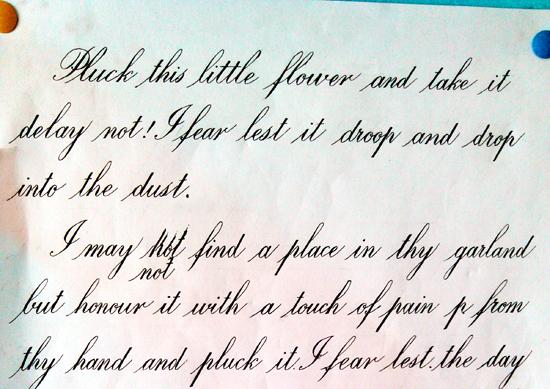 Pluck this little flower and take it
delay not! I fear lest it droop and drop
into the dust.
I may not find a place in thy garland
not
but honour it with a touch of pain p from
thy hand and pluck it. I fear lest the day